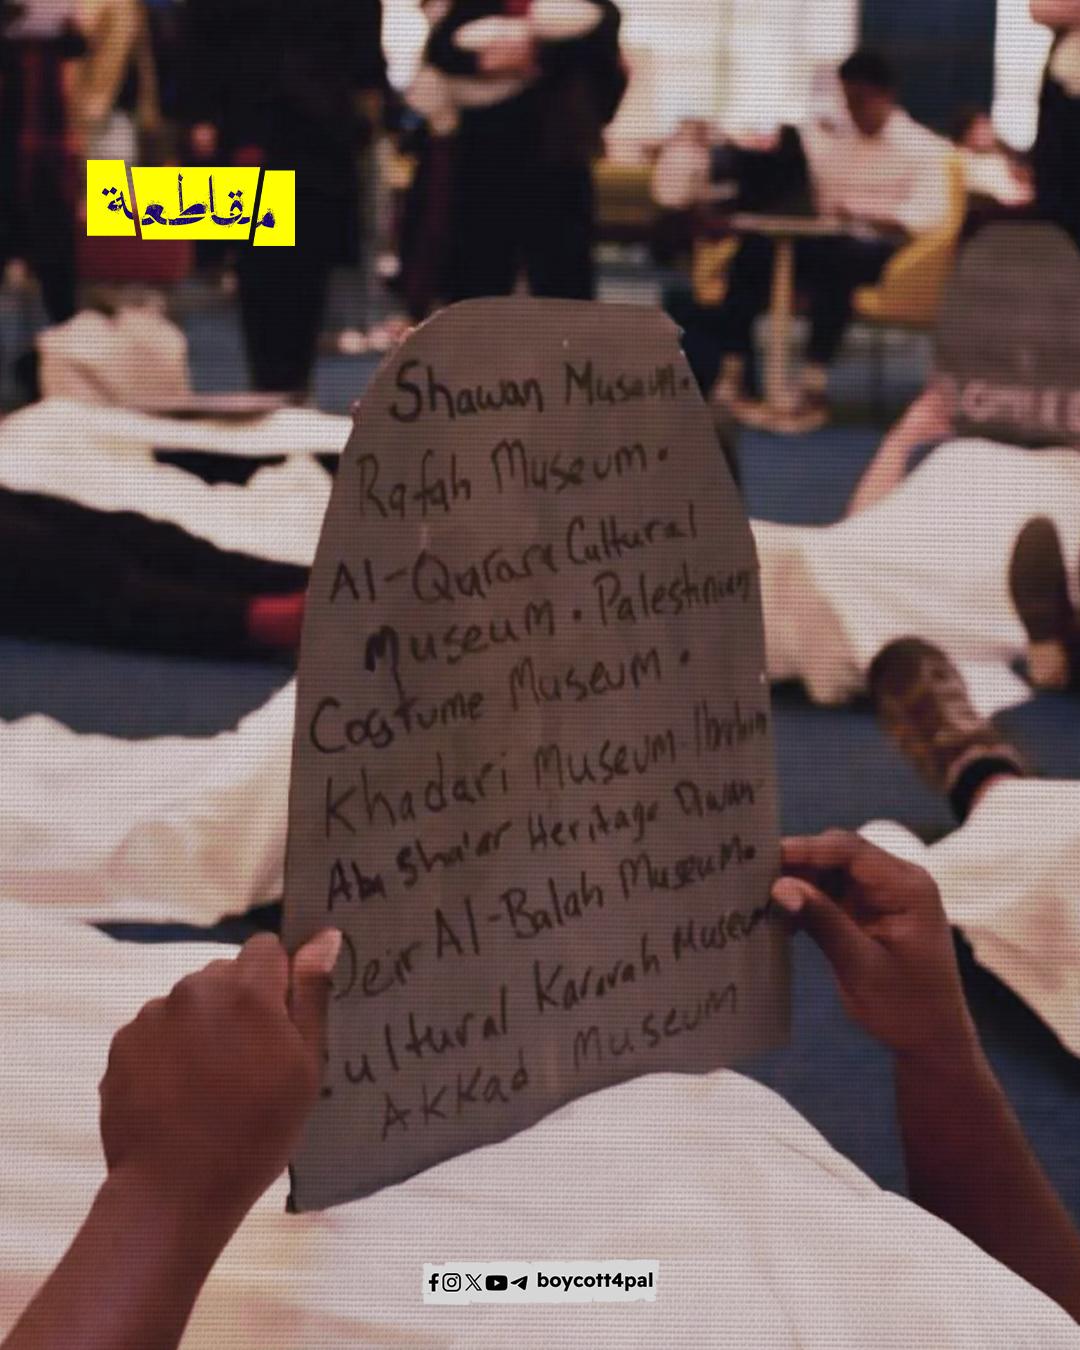 مقاطعة
Shawan Museum.
Rafah Museum.
Al-Qarara Cultural
Museum. Palestinian
Costume Museum.
Khadari Museum. Ibrahim
Abu Sha'ar Heritage Diwan
Deir Al-Balah Museum.
Cultural Kararah Museum
Akkad Museum
boycott4pal